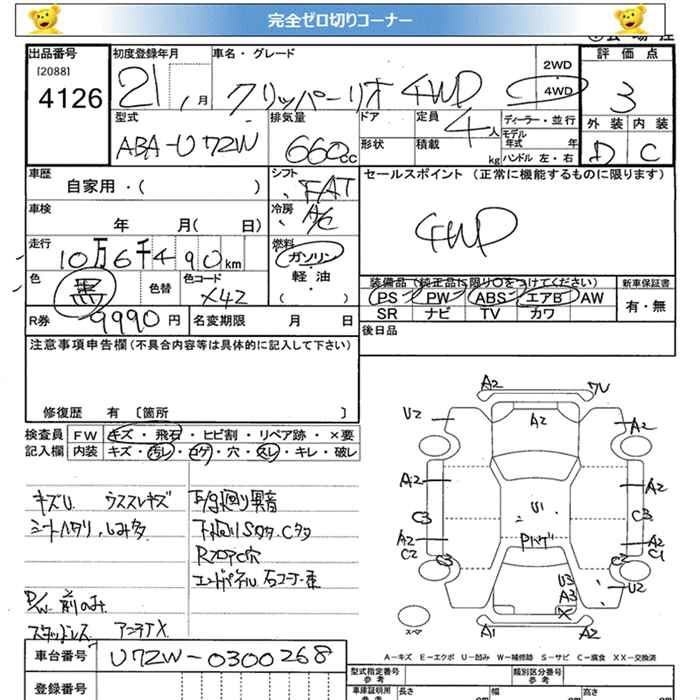 完全ゼロ切りコーナー
出品番号 初度登録年月 車名・グレード 2WD 評価点
[2088]
4126 21 , 月 クリッパーリオ 4WD 4WD 3
型式 排気量 ドア 定員 ディーラー・並行 外装 内装
ABA-U72W 660cc 4人 モデル年式 年 D C
形状 積載 kg ハンドル 左・右
車歴 シフト セールスポイント(正常に機能するものに限ります)
自家用・( ) FAT
車検 冷房 A/C 4WD
年 月( 日)
走行 燃料
10万6千490km ガソリン・
色 色替 色コード 軽油 装備品(純正品に限り○をつけてください) 新車保証書
黒 X42 ・( ) PS PW ABS エアB AW 有・無
SR ナビ TV カワ
R券 9990円 名変期限 月 日 後日品
注意事項申告欄(不具合内容等は具体的に記入して下さい)
修復歴 有 〔箇所 〕
検査員 FW キズ・飛石・ヒビ割・リペア跡・×要
記入欄 内装 キズ・汚レ・コゲ・穴・スレ・キレ・破レ
キズU. ウススレキズ
シートヘタリ、しみ多
下廻りSタタ、Cタタ
RフロアC穴
P/W. 前のみ
スタッドレス アンテナX
A2 A2
U2 A2
A2 A2
C3 U1 C3
A2 A2
C2 C1
C3 C2
U3 U2
A3
X
スペア A1 A2
A-キズ E-エクボ U-凹み W-補修跡 S-サビ C-腐食 XX-交換済
車台番号 U72W-0300268
登録番号
型式指定番号 参考 類別区分番号 参考
車庫証明用 参考 長さ 幅 高さ